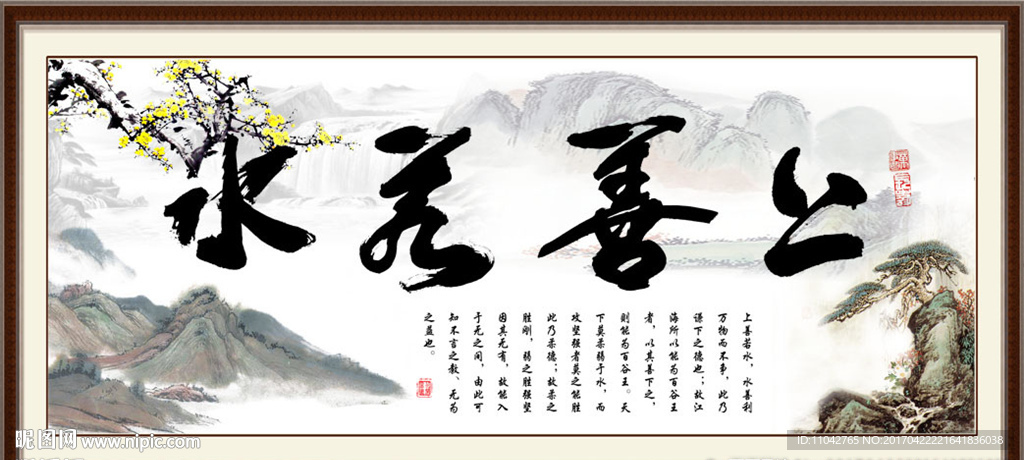 上善若水
上善若水，水善利
万物而不争，此乃
谦下之德也；故江
海所以能为百谷王
者，以其善下之，
则能为百谷王。天
下莫柔弱于水，而
攻坚强者莫之能胜
此乃柔德；故柔之
胜刚，弱之胜强坚
因其无有，故能入
于无之间，由此可
知不言之教、无为
之益也。
昵图网 www.nipic.com
ID:11042765 NO:20170422221641836038